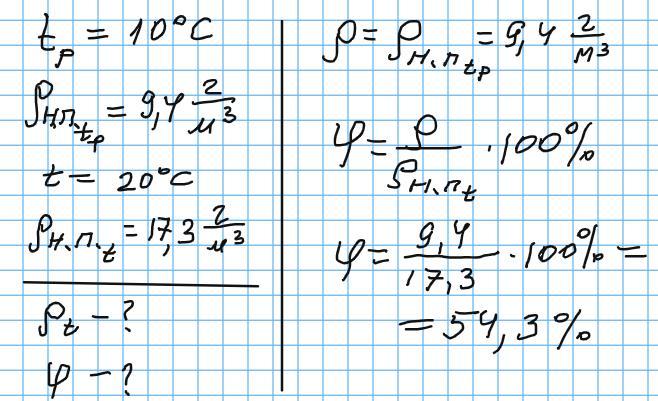 t_p = 10°C
ρ_н.п.t_p = 9,4 г/м³
t = 20°C
ρ_н.п.t = 17,3 г/м³
ρ_t - ?
φ - ?
ρ = ρ_н.п.t_p = 9,4 г/м³
φ = ρ / ρ_н.п.t · 100%
φ = 9,4 / 17,3 · 100% =
= 54,3%